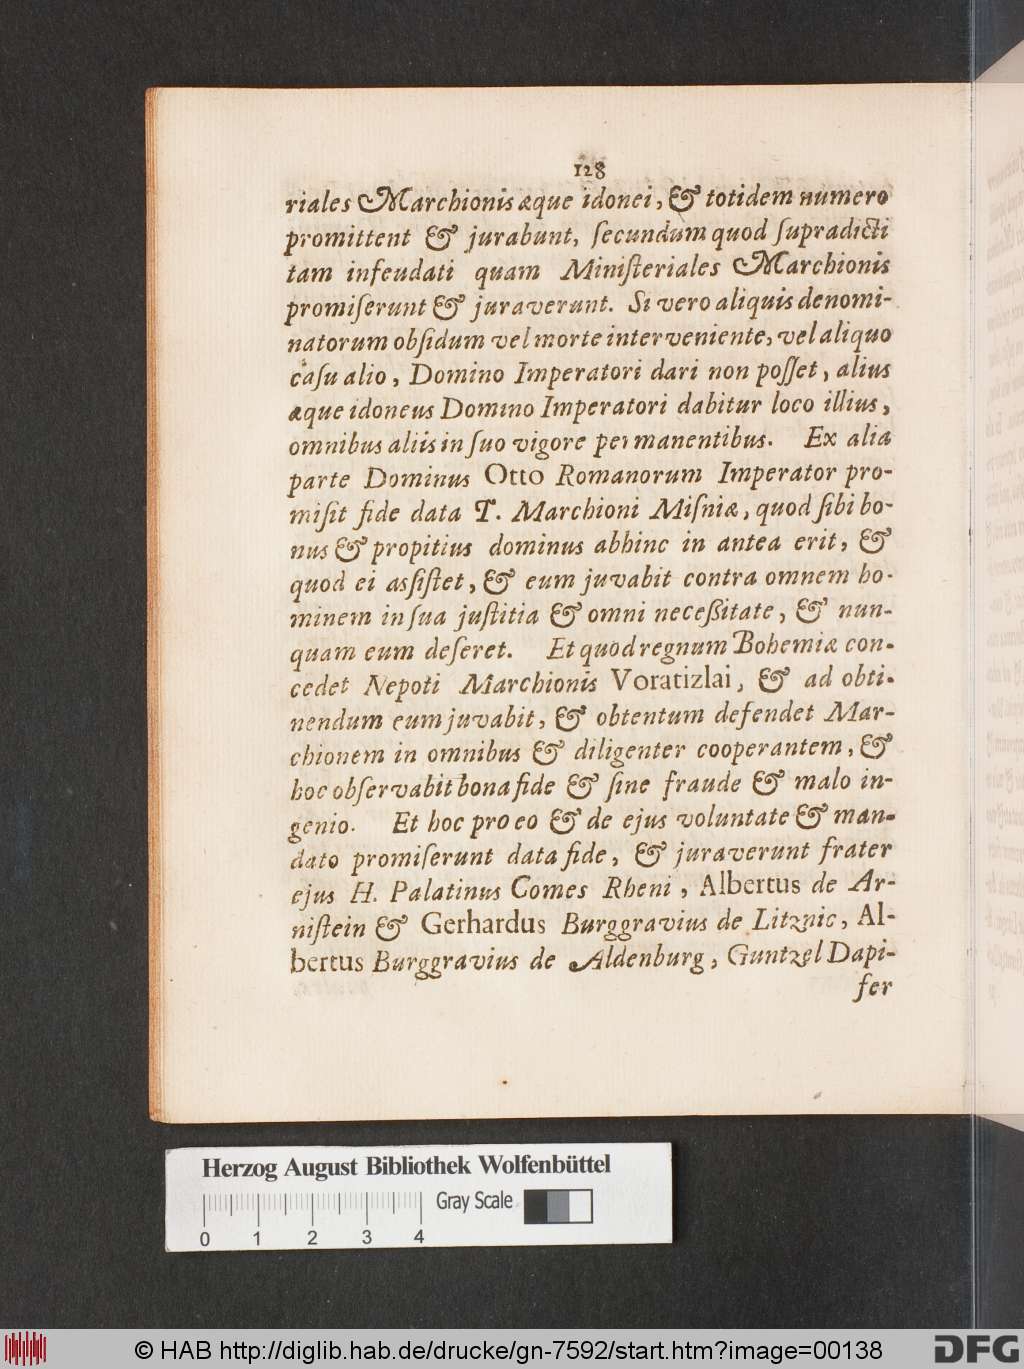 128
riales Marchionis æque idonei, & totidem numero
promittent & jurabunt, ſecundum quod ſupradicti
tam infeudati quam Miniſteriales Marchionis
promiſerunt & juraverunt. Si vero aliquis denomi-
natorum obſidum vel morte interveniente, vel aliquo
caſu alio, Domino Imperatori dari non poſſet, alius
æque idoneus Domino Imperatori dabitur loco illius,
omnibus aliis in ſuo vigore permanentibus. Ex alia
parte Dominus Otto Romanorum Imperator pro-
miſit fide data T. Marchioni Miſniæ, quod ſibi bo-
nus & propitius dominus abhinc in antea erit, &
quod ei asſiſtet, & eum juvabit contra omnem ho-
minem in ſua juſtitia & omni neceßitate, & nun-
quam eum deſeret. Et quod regnum Bohemiæ con-
cedet Nepoti Marchionis Voratizlai, & ad obti-
nendum eum juvabit, & obtentum defendet Mar-
chionem in omnibus & diligenter cooperantem, &
hoc obſervabit bona fide & ſine fraude & malo in-
genio. Et hoc pro eo & de ejus voluntate & man-
dato promiſerunt data fide, & juraverunt frater
ejus H. Palatinus Comes Rheni, Albertus de Ar-
niſtein & Gerhardus Burggravius de Litznic, Al-
bertus Burggravius de Aldenburg, Guntzel Dapi-
fer
Herzog August Bibliothek Wolfenbüttel
Gray Scale
0 1 2 3 4
© HAB http://diglib.hab.de/drucke/gn-7592/start.htm?image=00138
DFG